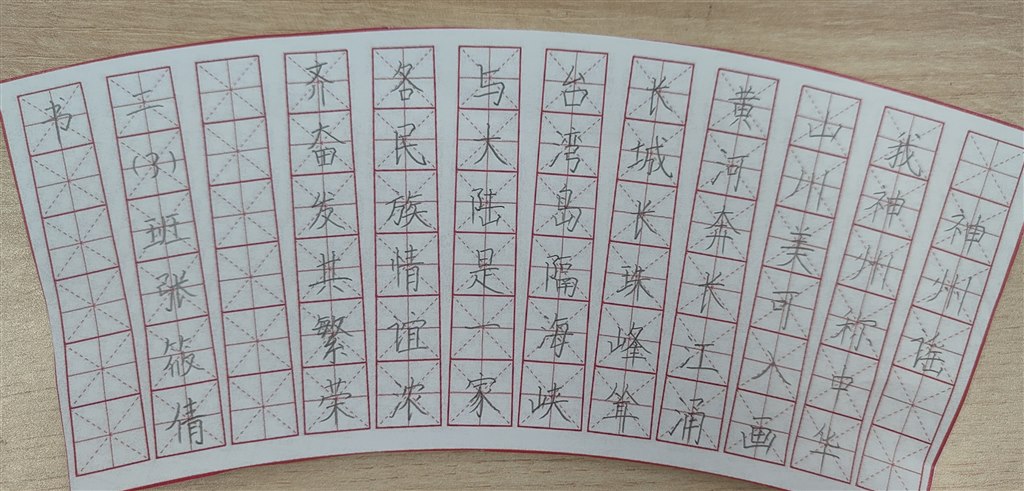 神州谣
我神州称中华
山川美可入画
黄河奔长江涌
长城长珠峰耸
台湾岛隔海峡
与大陆是一家
各民族情谊浓
齐奋发共繁荣
二(3)班张筱倩
书